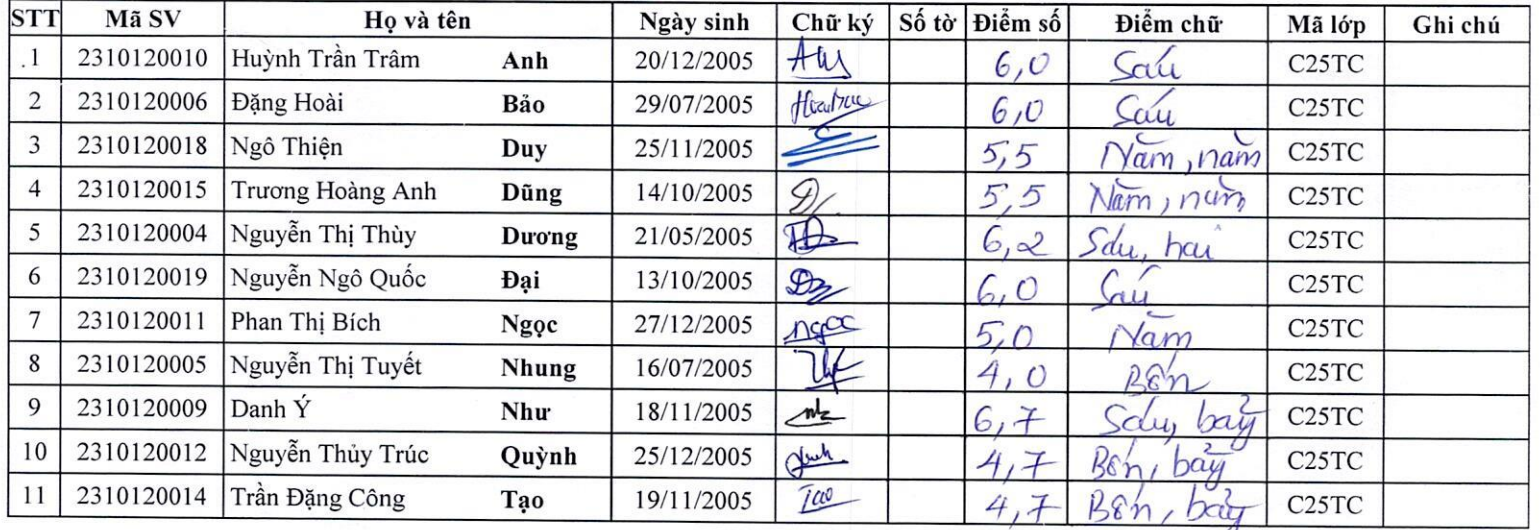 STT Mã SV Họ và tên Ngày sinh Chữ ký Số tờ Điểm số Điểm chữ Mã lớp Ghi chú
1 2310120010 Huỳnh Trần Trâm Anh 20/12/2005 6,0 Sáu C25TC
2 2310120006 Đặng Hoài Bảo 29/07/2005 6,0 Sáu C25TC
3 2310120018 Ngô Thiện Duy 25/11/2005 5,5 Năm, năm C25TC
4 2310120015 Trương Hoàng Anh Dũng 14/10/2005 5,5 Năm, năm C25TC
5 2310120004 Nguyễn Thị Thùy Dương 21/05/2005 6,2 Sáu, hai C25TC
6 2310120019 Nguyễn Ngô Quốc Đại 13/10/2005 6,0 Sáu C25TC
7 2310120011 Phan Thị Bích Ngọc 27/12/2005 ngọc 5,0 Năm C25TC
8 2310120005 Nguyễn Thị Tuyết Nhung 16/07/2005 4,0 Bốn C25TC
9 2310120009 Danh Ý Như 18/11/2005 6,7 Sáu, bảy C25TC
10 2310120012 Nguyễn Thủy Trúc Quỳnh 25/12/2005 4,7 Bốn, bảy C25TC
11 2310120014 Trần Đặng Công Tạo 19/11/2005 Tạo 4,7 Bốn, bảy C25TC